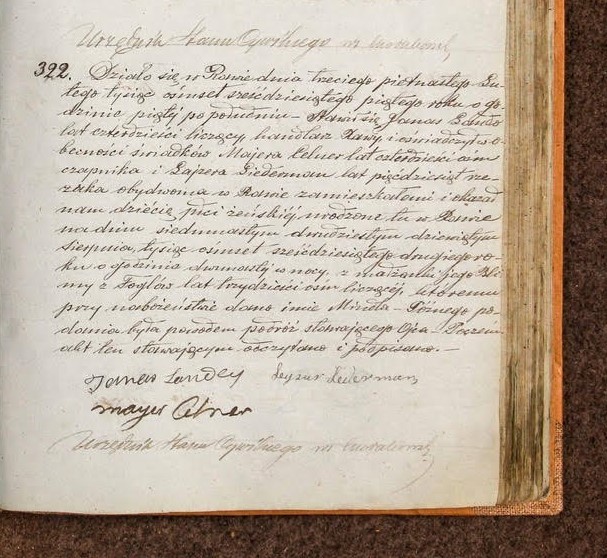 Urzędnik Stanu Cywilnego
322. Działo się w Rawie dnia trzeciego piętnastego Lu-
tego tysiąc ośmset sześćdziesiątego piątego roku o go-
dzinie piąty po południu – Stawił się Janas Lando
lat czterdzieści liczący, handlarz Rawy i oświadczył w o-
becności świadków Majera Celner lat czterdzieści osm
czapnika i Lajzera Liederman lat pięćdziesiąt rze-
zaka obydwoma w Rawie zamieszkałemi i okazał
nam dziecię płci żeńskiéj urodzone tu w Rawie
na dniu siedmnastym dwudziestym dziewiątym
Sierpnia tysiąc ośmset sześćdziesiątego drugiego ro-
ku o godzinie dwunasty w nocy, z małżonki jego Bli-
my z Foglów lat trzydzieści ośm liczącéj, któremu
przy nabożeństwie dano imie Mindla – Późnego po-
dania była powodem podróż stawającego Ojca – Poczem
akt ten stawającym odczytano i podpisano. –
Janas Landey Leyzur Lederman
Mayer Celner
Urzędnik Stanu Cywilnego